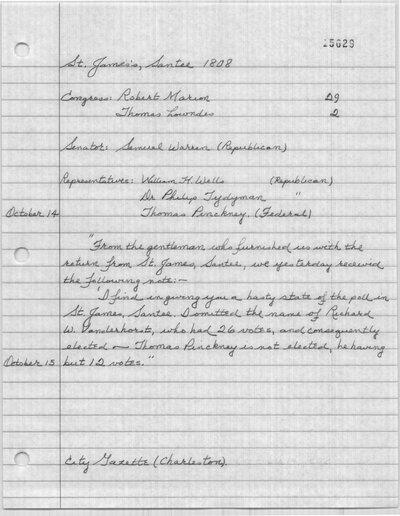 25629
St. James's, Santee 1808
Congress: Robert Marion 29
Thomas Lowndes 2
Senator: General Warren (Republican)
Representatives: William H. Wells (Republican)
Dr Philip Tydyman "
October 14 Thomas Pinckney. (Federal)
"From the gentleman who furnished us with the
return from St. James, Santee, we yesterday received
the following note:—
'I find in giving you a hasty state of the poll in
St. James, Santee. I omitted the name of Richard
W. Vanderhorst, who had 26 votes, and consequently
elected — Thomas Pinckney is not elected, he having
October 15 but 12 votes."
City Gazette (Charleston).